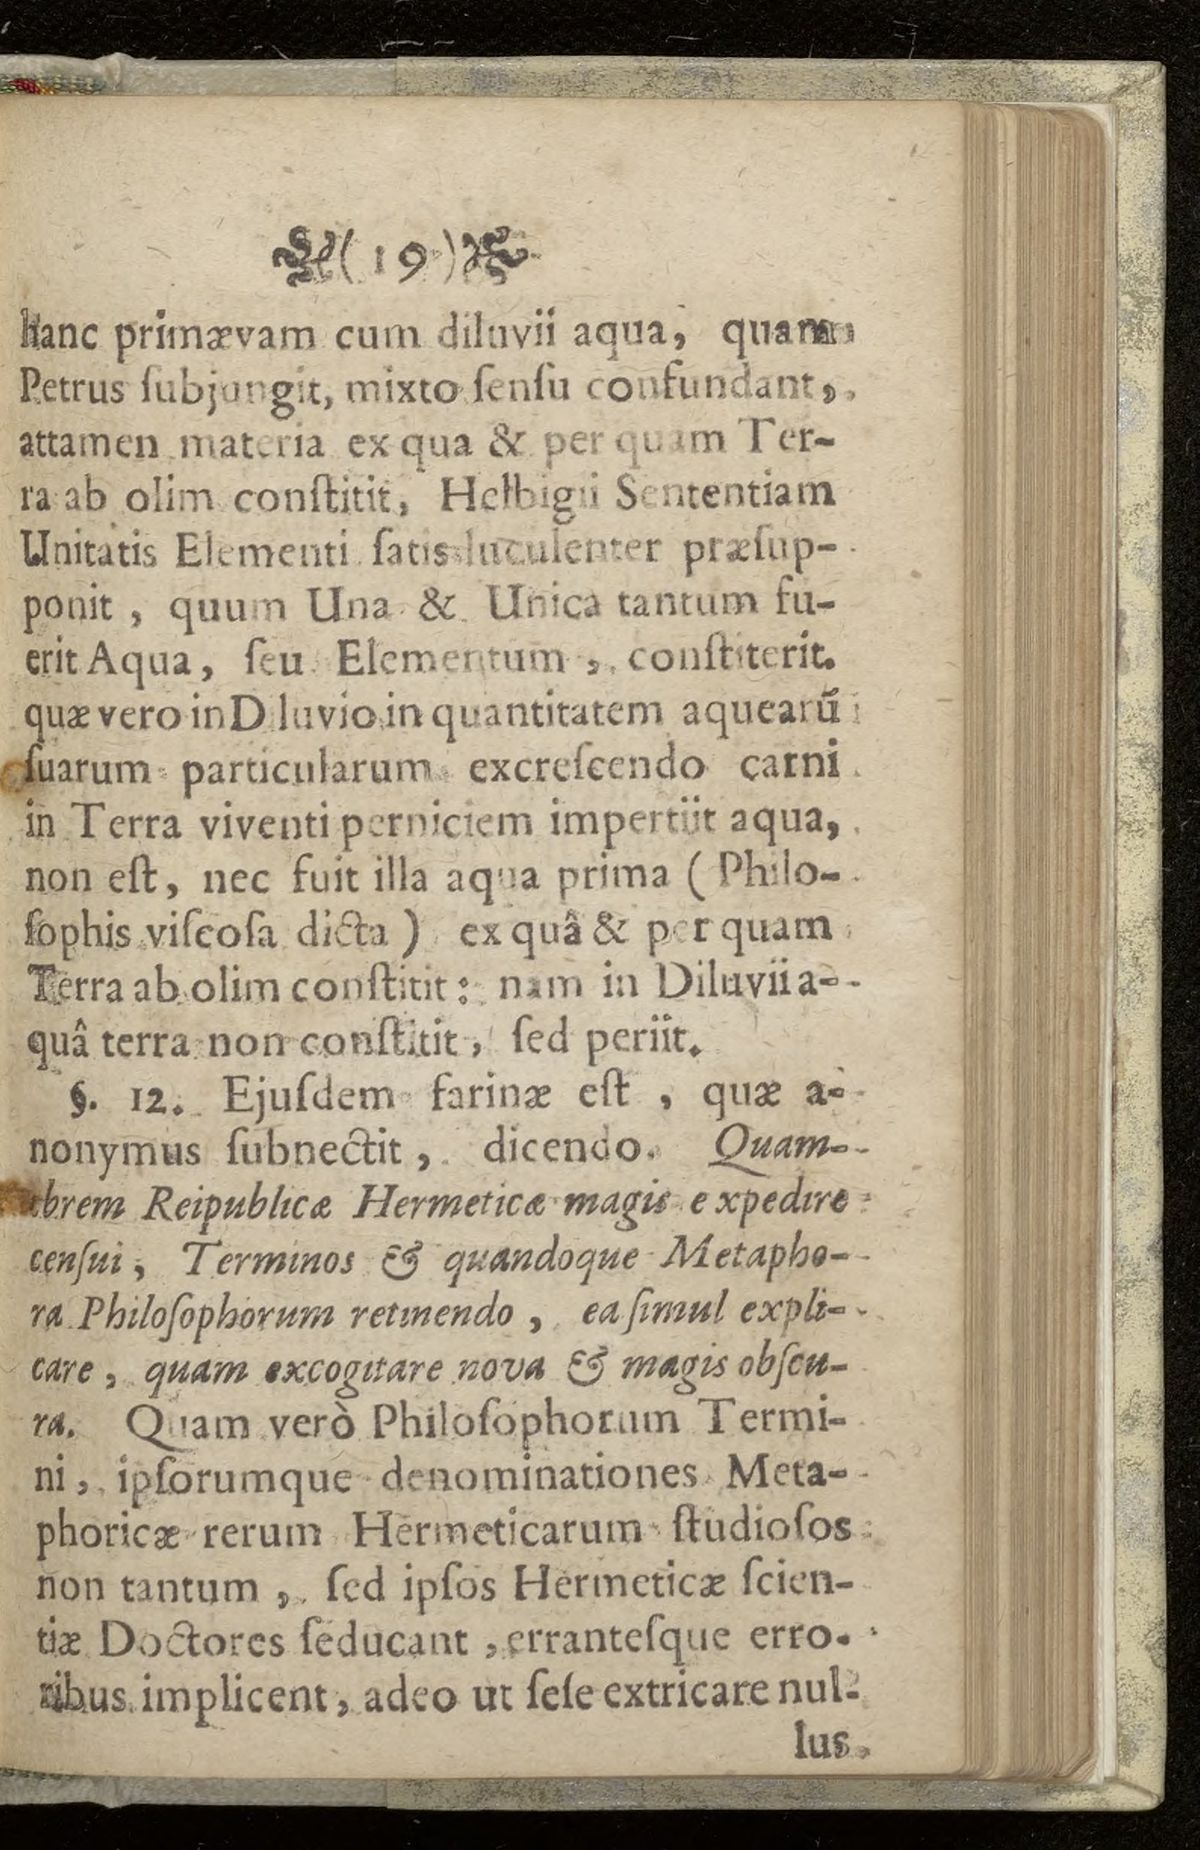 ( 19 )
hanc primævam cum diluvii aqua, quam
Petrus ſubjungit, mixto ſenſu confundant,
attamen materia ex qua & per quam Ter-
ra ab olim conſtitit, Helbigii Sententiam
Unitatis Elementi ſatis luculenter præſup-
ponit, quum Una & Unica tantum fu-
erit Aqua, ſeu Elementum, conſtiterit.
quæ vero in Diluvio in quantitatem aquearū
ſuarum particularum excreſcendo carni
in Terra viventi perniciem impertiit aqua,
non eſt, nec fuit illa aqua prima (Philo-
ſophis viſcoſa dicta) ex quâ & per quam
Terra ab olim conſtitit: nam in Diluvii a-
quâ terra non conſtitit, ſed periit.
§. 12. Ejuſdem farinæ eſt, quæ a-
nonymus ſubnectit, dicendo. Quam-
obrem Reipublicæ Hermeticæ magis expedire
cenſui, Terminos & quandoque Metapho-
ra Philoſophorum retinendo, ea ſimul expli-
care, quam excogitare nova & magis obſcu-
ra. Quam verò Philoſophorum Termi-
ni, ipſorumque denominationes Meta-
phoricæ rerum Hermeticarum ſtudioſos
non tantum, ſed ipſos Hermeticæ ſcien-
tiæ Doctores ſeducant, erranteſque erro-
ribus implicent, adeo ut ſeſe extricare nul-
lus